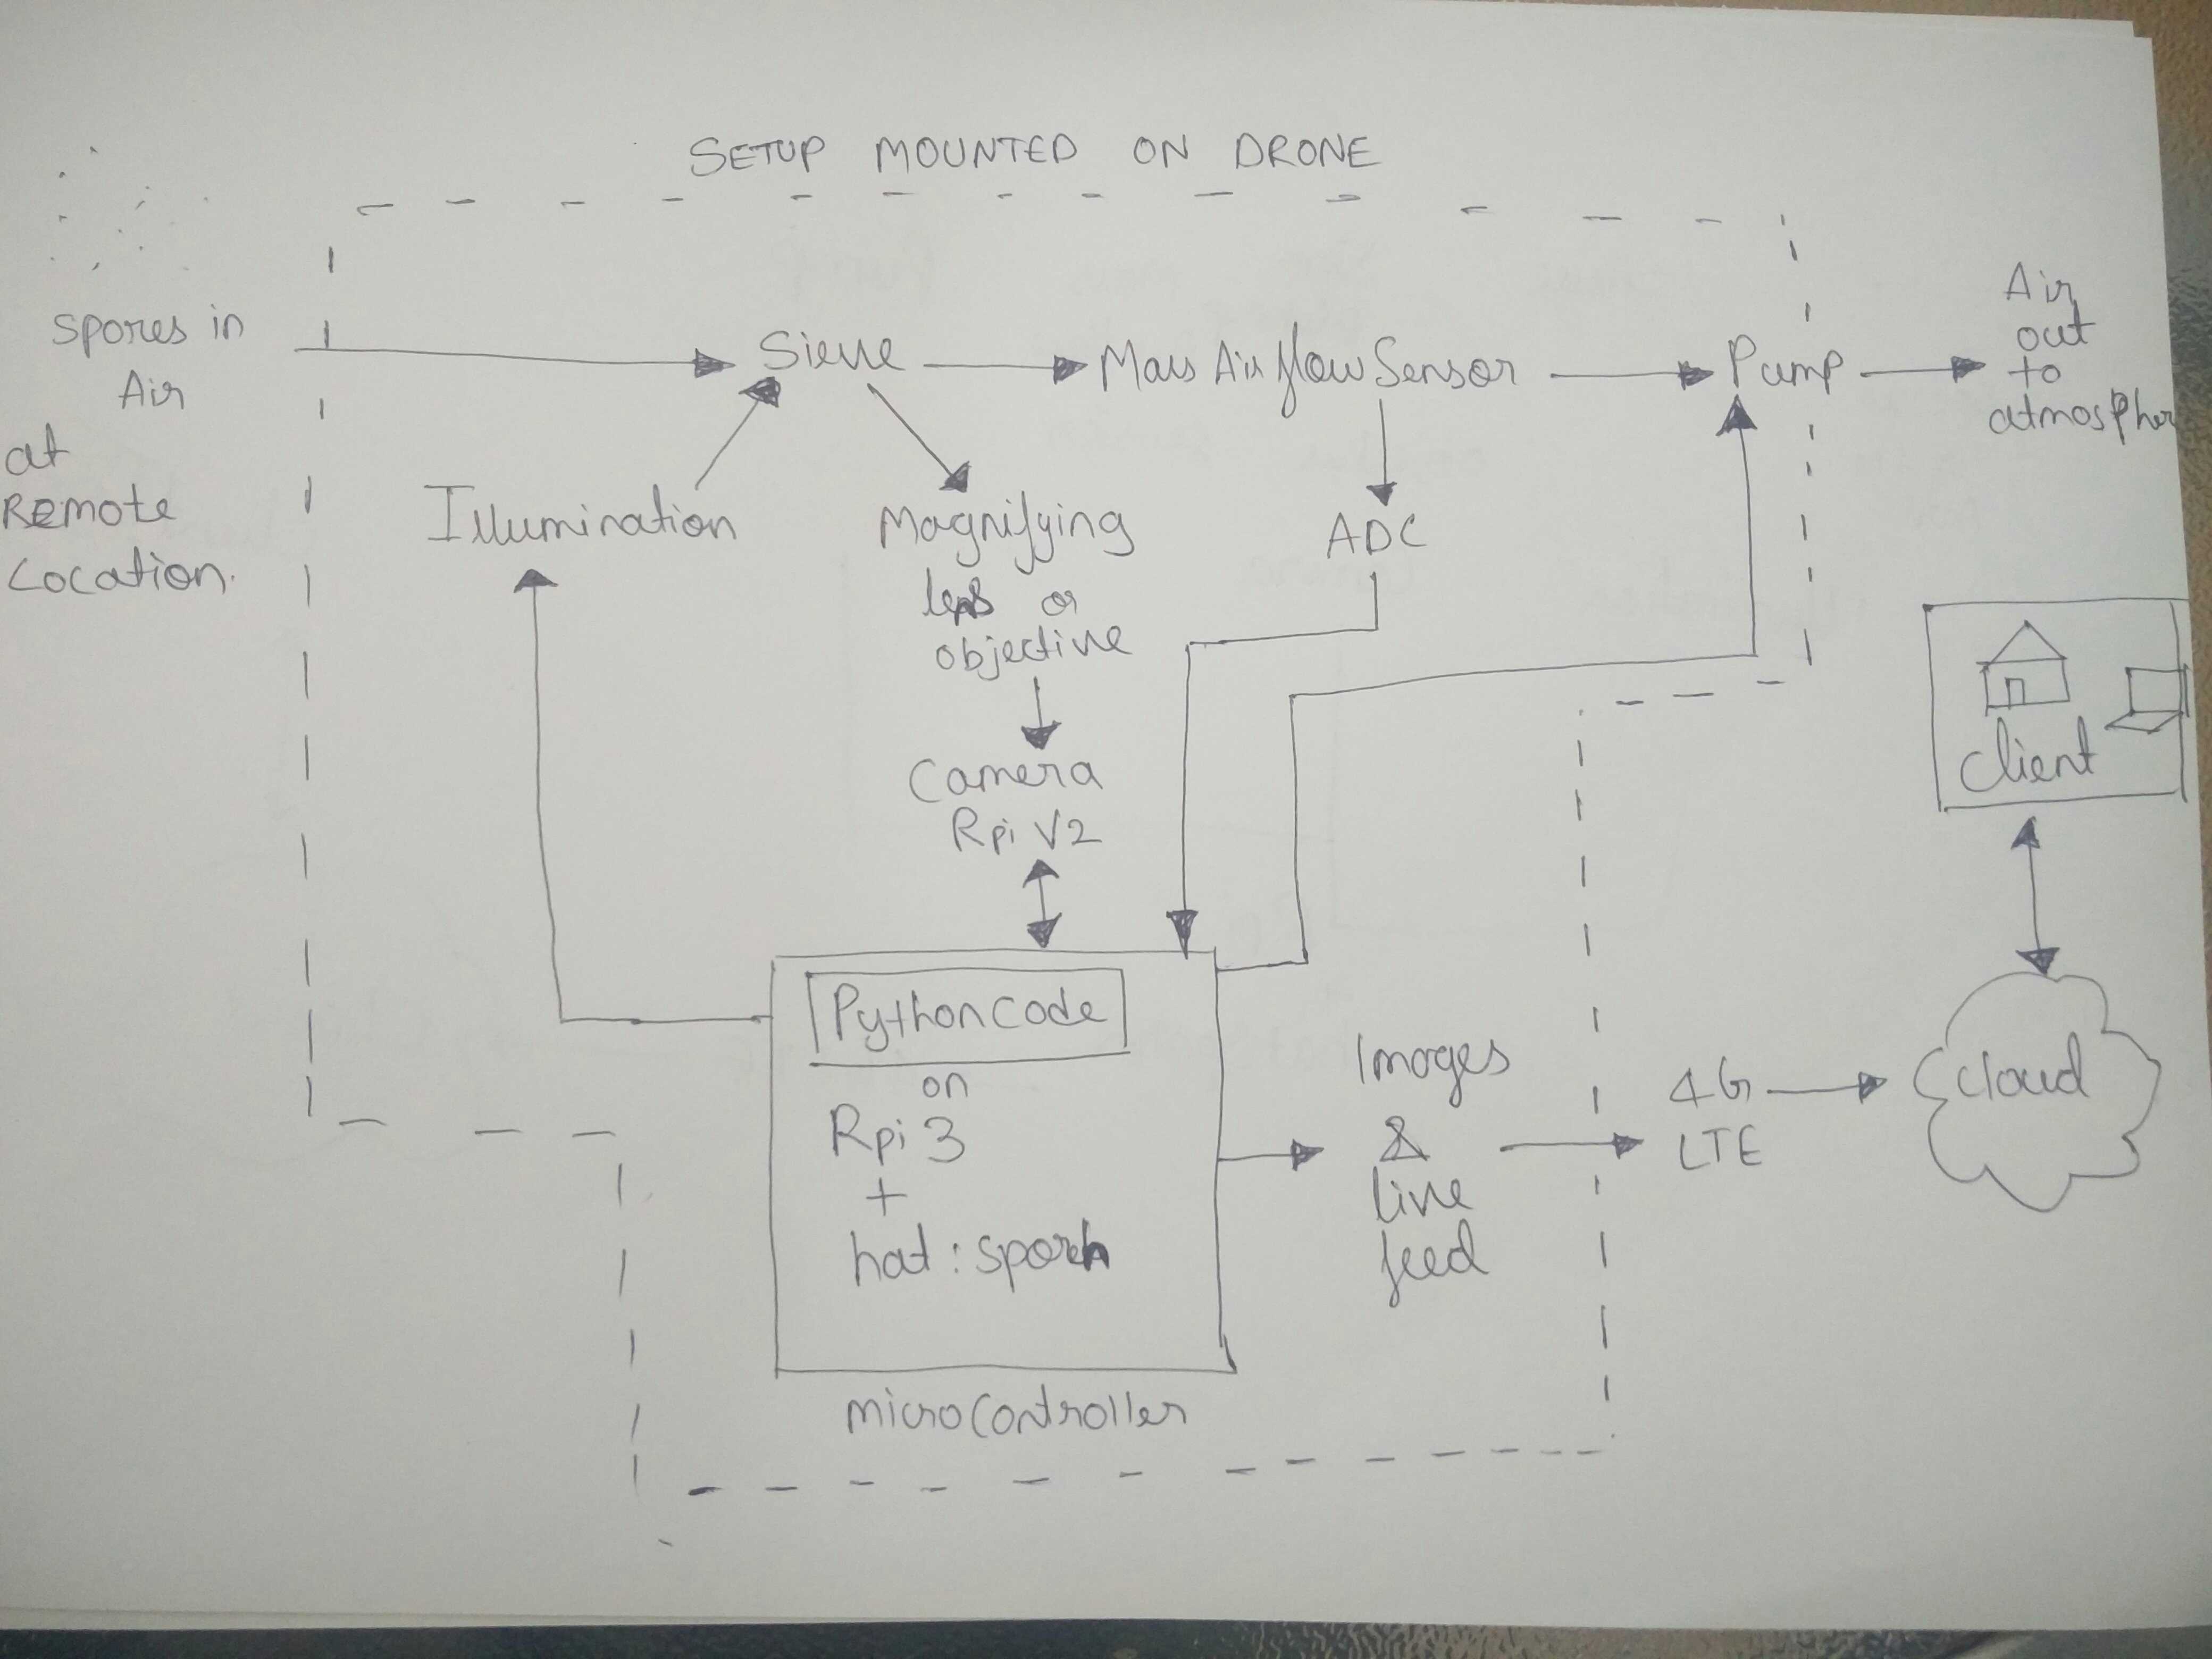 SETUP MOUNTED ON DRONE
Spores in
Air
at
Remote
Location.
Sieve
Mass Air flow Sensor
Pump
Air
out
to
atmospher
Illumination
Magnifying
lens or
objective
ADC
Camera
Rpi V2
Client
Python code
on
Rpi 3
+
hat:
microcontroller
Images
&
live
feed
4G
LTE
cloud